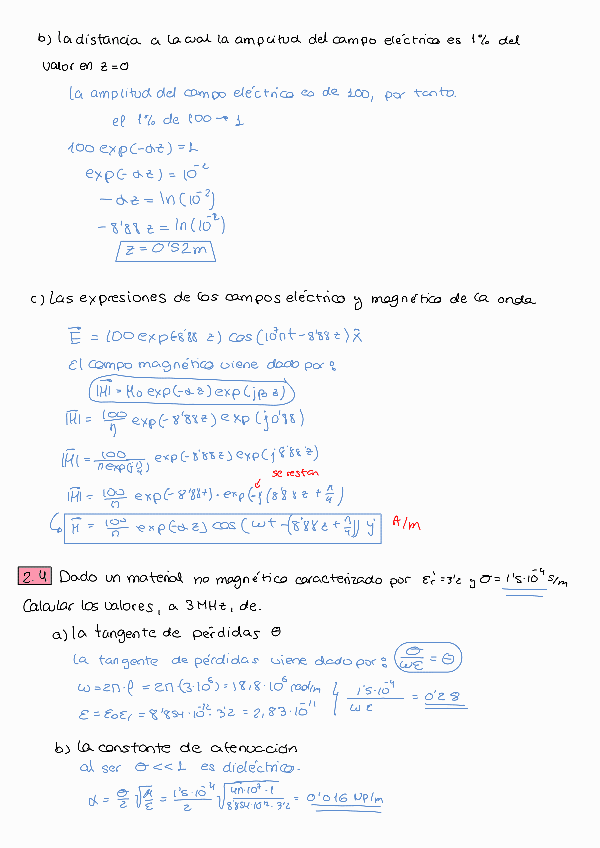 b) la distancia a la cual la amplitud del campo eléctrico es 1% del
valor en z=0
la amplitud del campo eléctrico es de 100, por tanto.
el 1% de 100 → 1
100 exp(-αz) = 1
exp(-αz) = 10^-2
-αz = ln(10^-2)
-8'88 z = ln(10^-2)
z = 0'52 m
c) las expresiones de los campos eléctrico y magnético de la onda
E = 100 exp(-8'88 z) cos(10^7πt - 8'88 z) x̂
El campo magnético viene dado por:
|H| = H0 exp(-αz) exp(jβz)
|H| = 100/η exp(-8'88z) exp(j0'88)
|H| = 100/(π exp(j π/4)) exp(-8'88z) exp(j 8'88 z)
se restan
|H| = 100/π exp(-8'88z) · exp(-j(8'88 z + π/4)
H = 100/π exp(-αz) cos(ωt - (8'88z + π/4)) ŷ A/m
2.4 Dado un material no magnético caracterizado por εr' = 3'2 y σ = 1'5·10^-4 S/m
Calcular los valores, a 3 MHz, de.
a) la tangente de pérdidas θ
la tangente de pérdidas viene dado por: σ/ωε = θ
ω = 2π·f = 2π(3·10^6) = 18,8·10^6 rad/m
1'5·10^-4/ωε = 0'28
ε = ε0εr = 8'854·10^-12·3'2 = 2,83·10^-11
b) la constante de atenuación
al ser θ << 1 es dieléctrico.
α = σ/2 √(μ/ε) = 1'5·10^-4/2 √(4π·10^-7·1/8'854·10^-12·3'2) = 0'016 NP/m